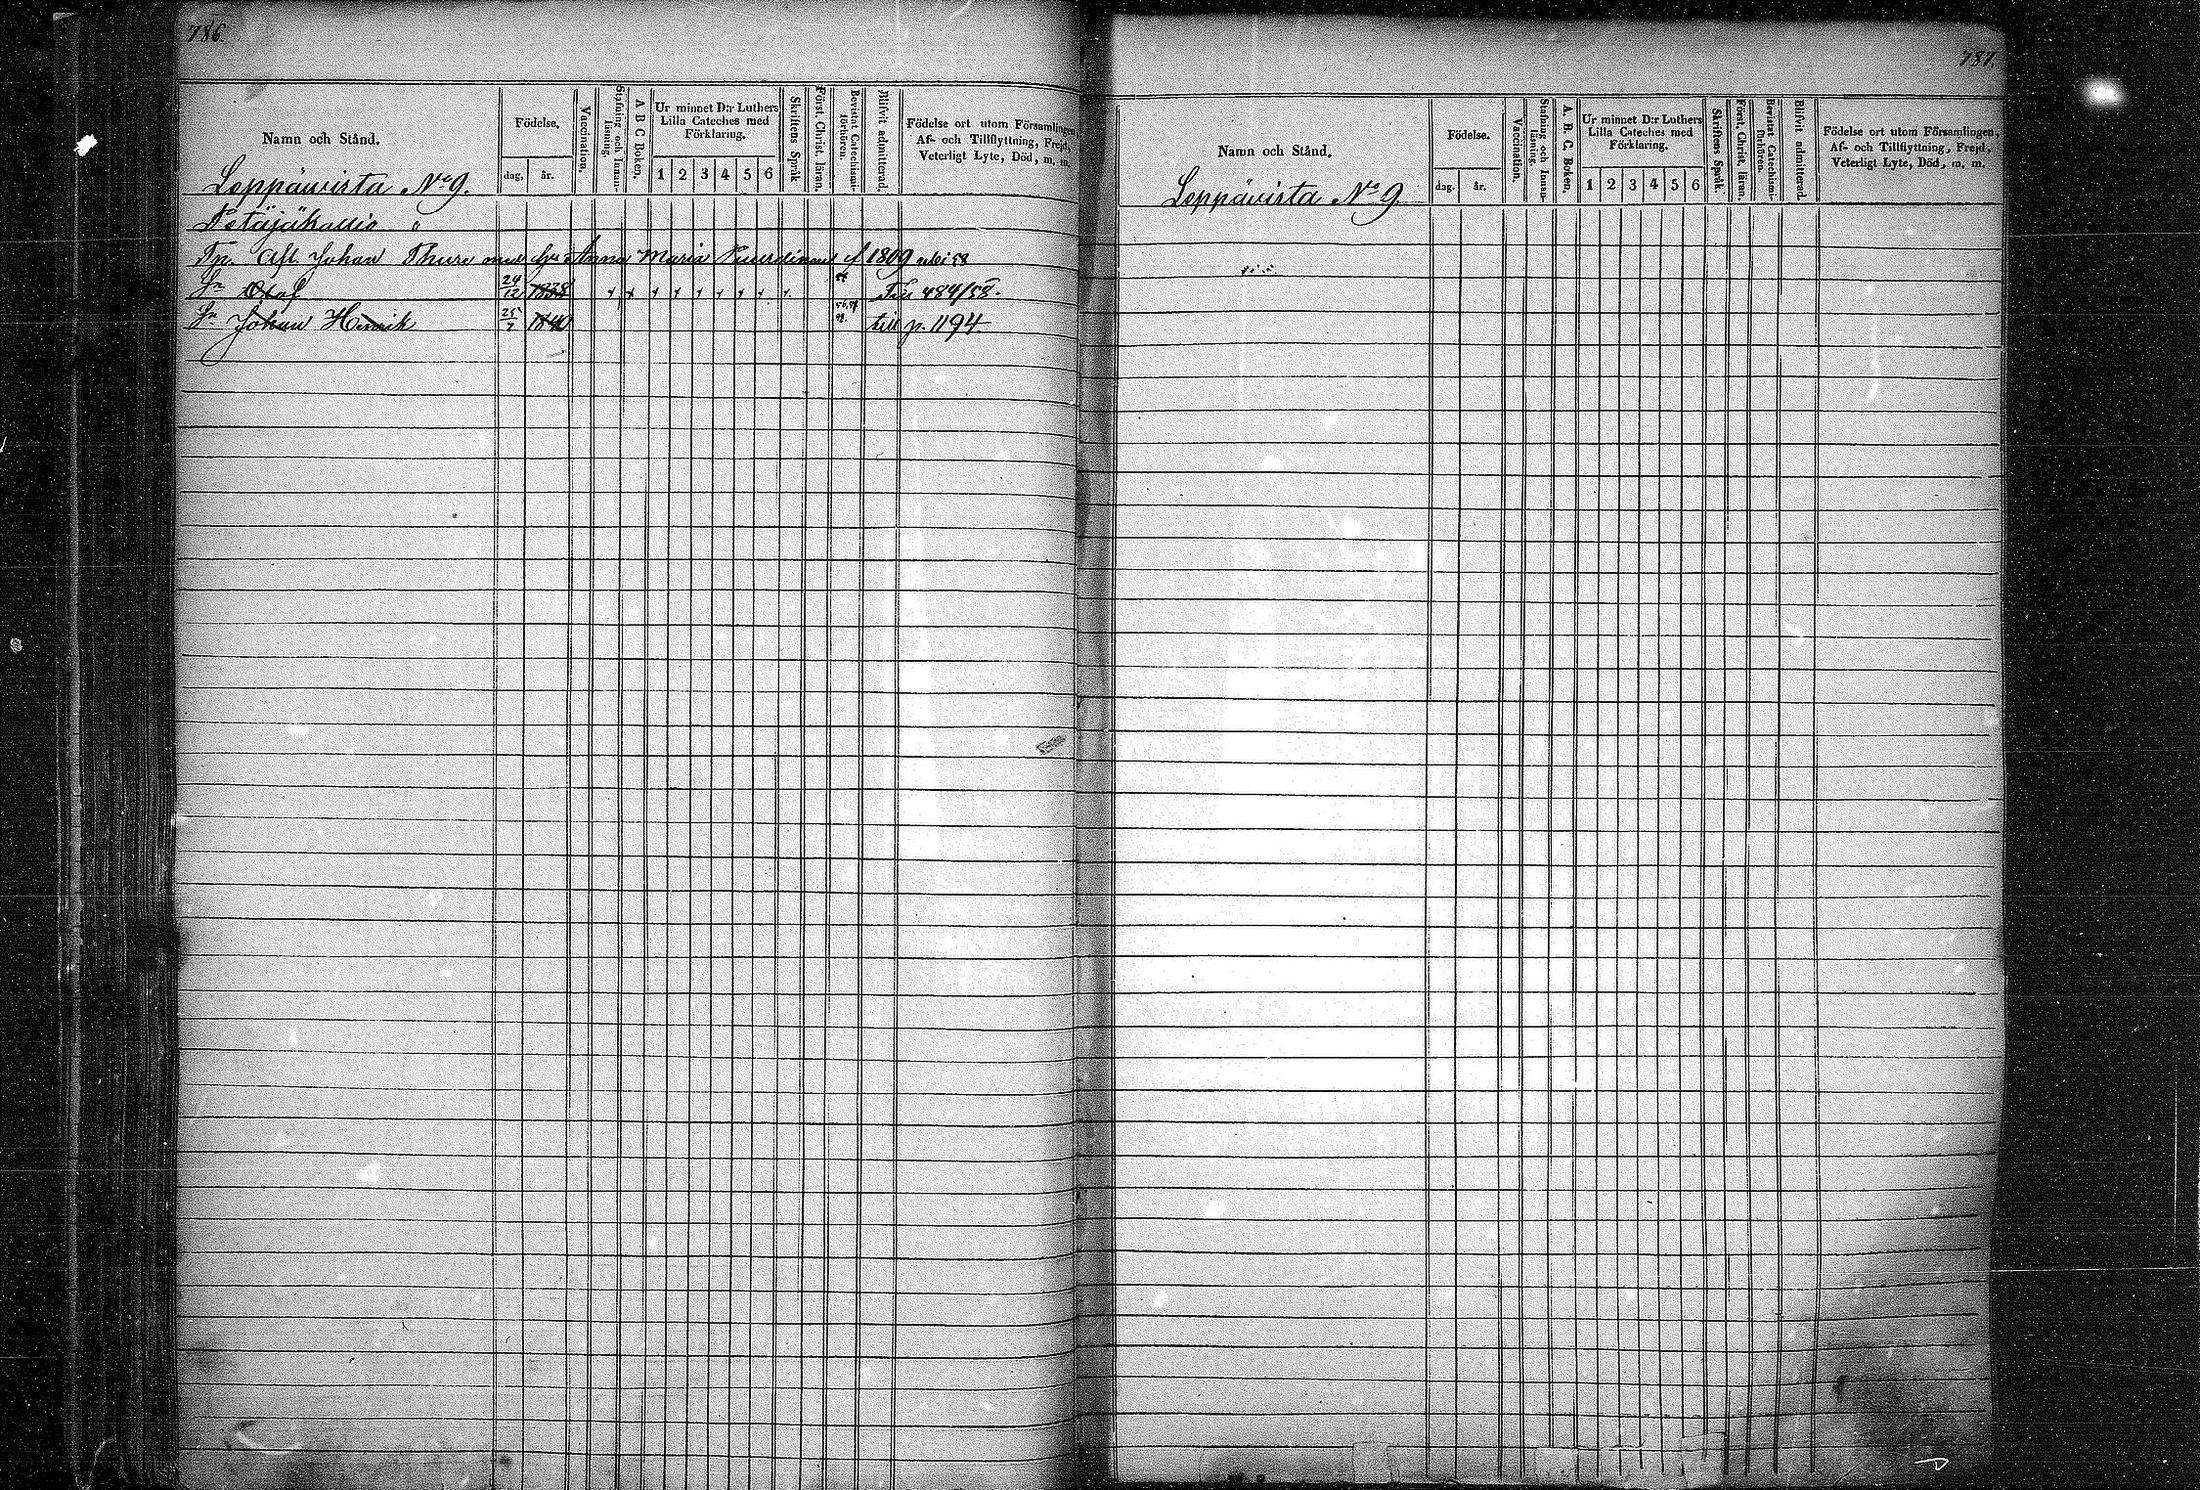 786
Namn och Stånd.
Födelse.
dag,
år.
Vaccination.
Stafning och Innanläsning.
A B C Boken.
Ur minnet D:r Luthers
Lilla Cateches med
Förklaring.
1 2 3 4 5 6
Skriftens Språk
Först. Christ. läran.
Bevistat Catechismi-
förhören.
Blifvit admitterad.
Födelse ort utom Församlingen,
Af- och Tillflyttning, Frejd,
Veterligt Lyte, Död, m. m.
Leppäwirta No 9.
Petäjäkallio "
Afl. Johan Thure med Anna Maria 1809
Sn Olof 24/12 1838 Till 484/58.
Sn Johan Henrik 25/7 1840 till p. 1194.
787.
Namn och Stånd.
Födelse.
dag.
år.
Vaccination.
Stafning och Innan-
läsning.
A. B. C. Boken.
Ur minnet D:r Luthers
Lilla Cateches med
Förklaring.
1 2 3 4 5 6
Skriftens Språk.
Först. Christ. läran.
Bevistat Catechismi-
förhören.
Blifvit admitterad.
Födelse ort utom Församlingen,
Af- och Tillflyttning, Frejd,
Veterligt Lyte, Död, m. m.
Leppäwirta No 9